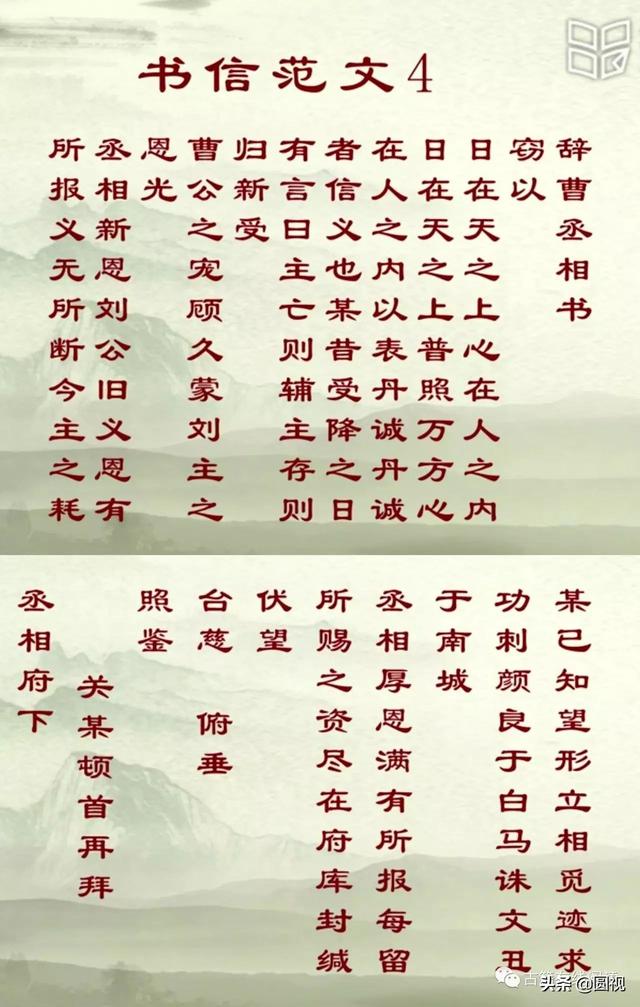 书信范文4
辞曹丞相书
窃以
日在天之上心在人之内
日在天之上普照万方心
在人之内以表丹诚丹诚
者信义也某昔受降之日
有言曰主亡则辅主存则
归新受
曹公之宠顾久蒙刘主之
恩光
丞相新恩刘公旧义恩有
所报义无所断今主之耗
某已知望形立相觅迹求
功刺颜良于白马诛文丑
于南城
丞相厚恩满有所报每留
所赐之资尽在府库封缄
伏望
台慈 俯垂
照鉴
关某顿首再拜
丞相府下
头条 @圆视